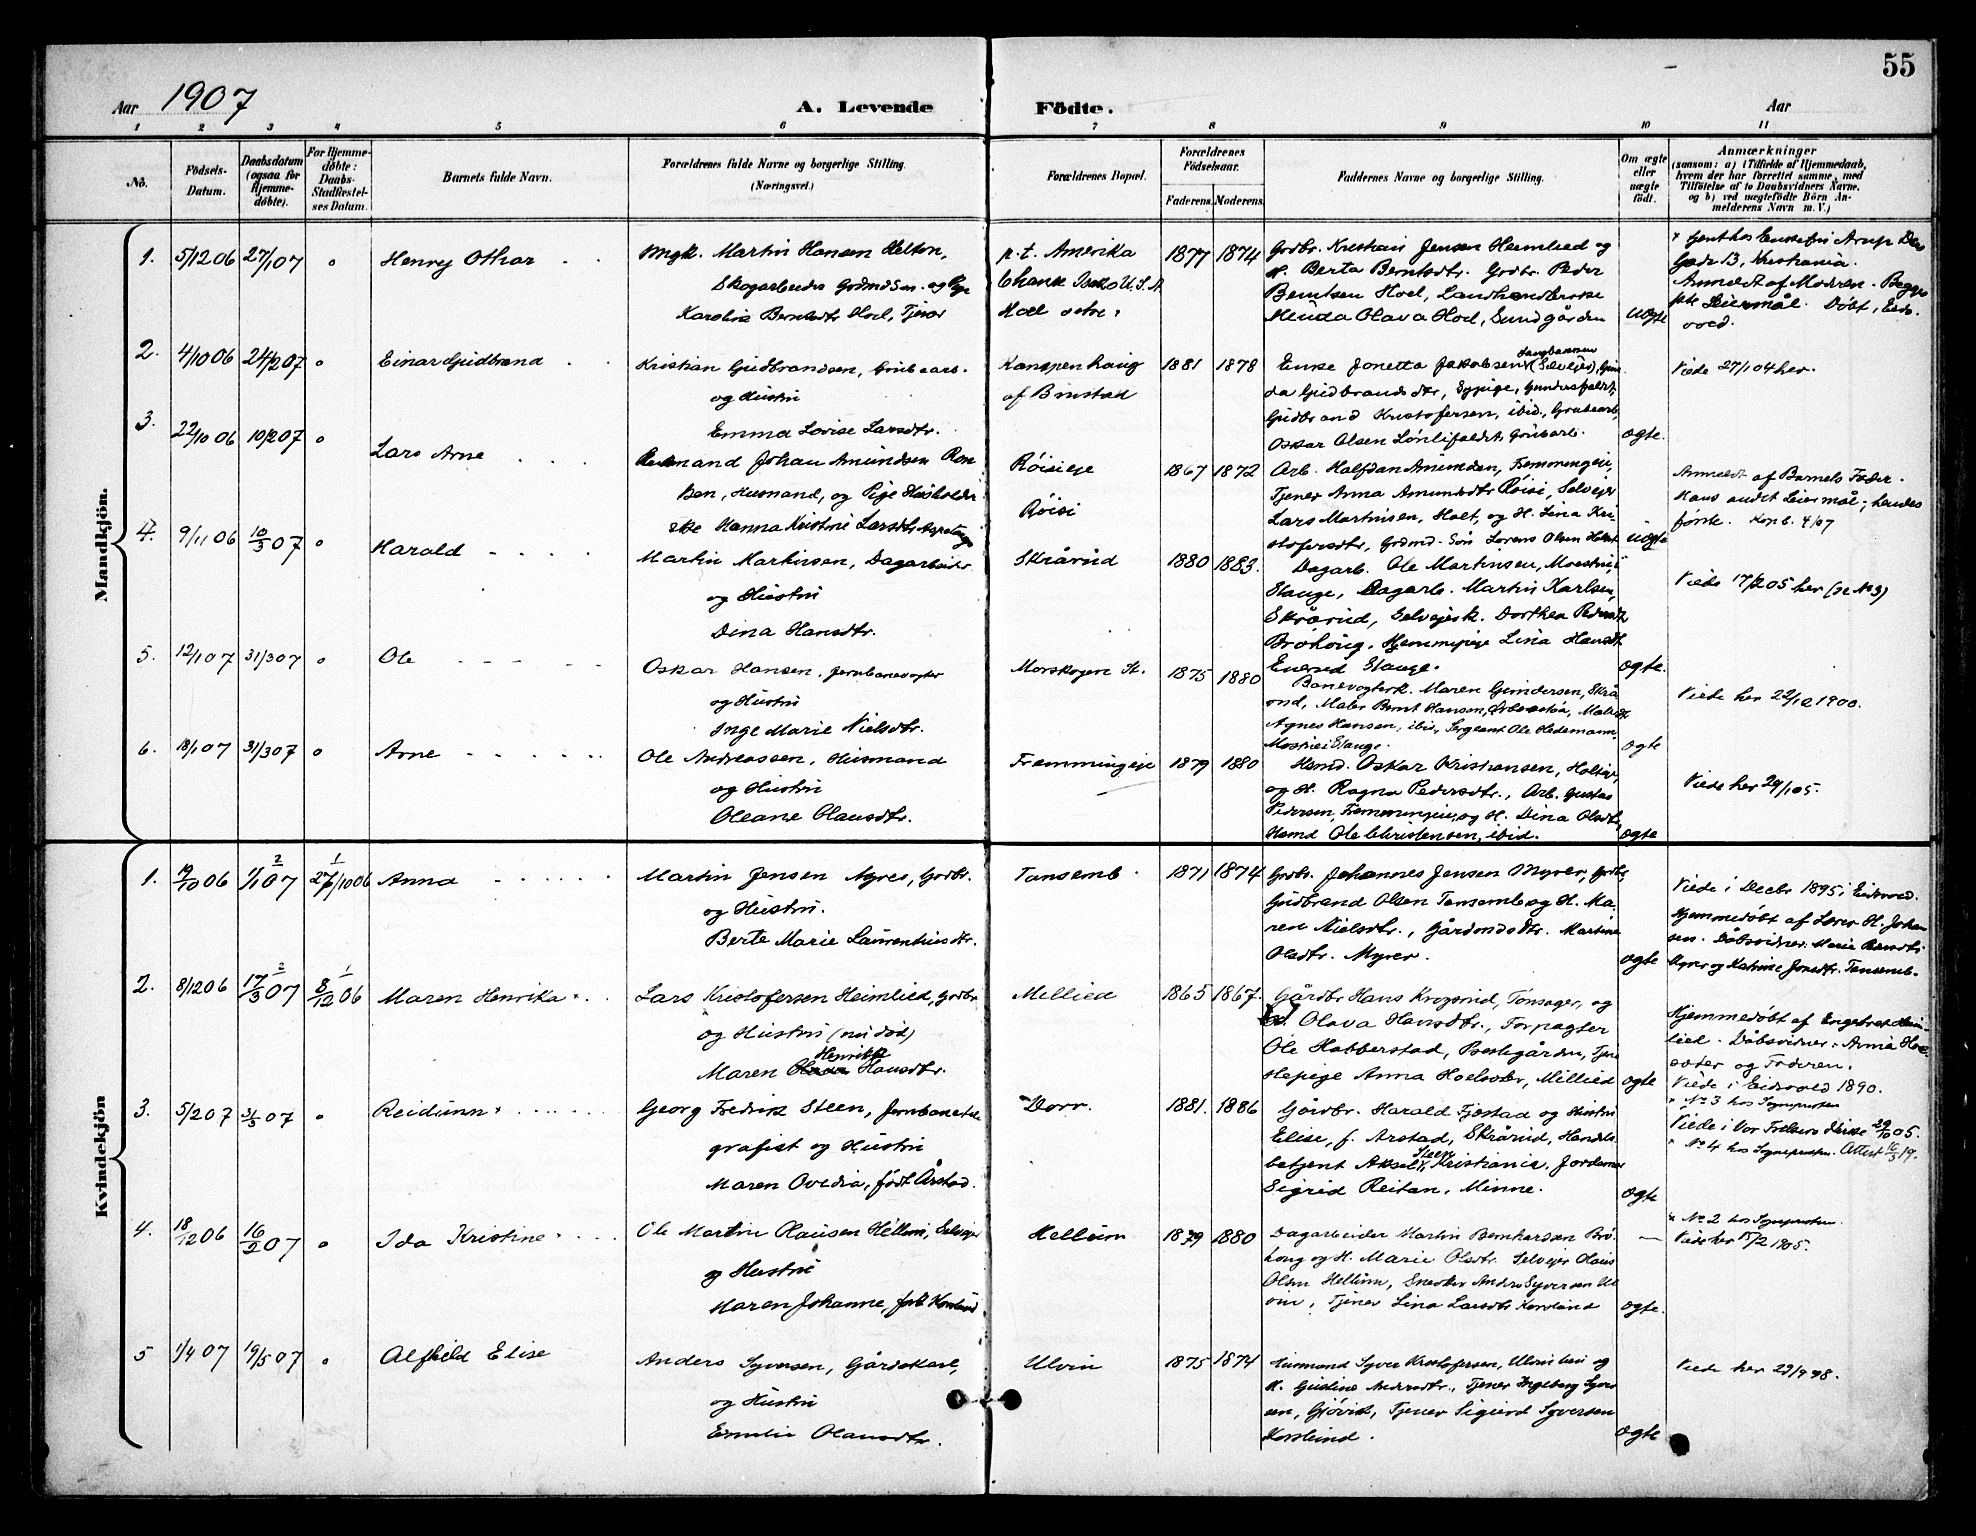 55
Aar 1907
A. Levende Födte.
Aar
1 2 3 4 5 6 7 8 9 10 11
No.
Födsels-Datum.
Daabsdatum (ogsaa for Hjemme-døbte).
For Hjemme-døbte: Daabs-Stadfæstel-ses Datum.
Barnets fulde Navn.
Forældrenes fulde Navne og borgerlige Stilling.
(Næringsvei.)
Forældrenes Bopæl.
Forældrenes Födselsaar.
Faderens. Moderens.
Faddernes Navne og borgerlige Stilling.
Om ægte eller uægte födt.
Anmærkninger
(saasom: a) i Tilfælde af Hjemmedaab,
hvem der har forrettet samme, med
Tilføielse af to Daabsvidners Navne,
og b) ved uægtefødte Börn An-
melderens Navn m. V.)
Mandkjön.
1. 5/12 06 27/1 07 Henry Othar
Ungk. Martin Hansen Helton,
Skogarbeider Grdmd Søn. og Pige
Karoline Berntsdtr Hoel, Tjener
p.t. Amerika
U.S.A.
Hoel østre.
1877 1874
Grdbr. Kristian Jensen Heimlied og
H. Berta Berntsdtr. Grdbr. Peder
Berntsen Hoel, Landhandlerske
Menda Olava Hoel, Sundgården
uægte
Kristiania.
Anmeldt af Moderen. Begges
1ste Leiermål. Døbt, Eids-
vold.
2. 4/10 06 24/2 07 Einar Gudbrand
Kristian Gudbrandsen, Grubearb.
og Hustru
Emma Lovise Larsdtr.
af Brustad
1881 1878
Enke Jonetta Jakobsen
da Gudbrandsdtr, Sypige,
Gudbrand Kristofersen, ibid, Grubearb,
Oskar Olsen Lønlifaldet, Grubearb.
ægte.
Viede 27/1 04 her.
3. 22/10 06 10/2 07 Lars Arne
Johan Amundsen Røn
sen, Husmand, og Pige Husholder
ske Hanna Kristine Larsdtr
Røisieie
Røisi
1867 1872
Arb. Halfdan Amundsen, Fremmingeie,
Tjener Anna Amundsdtr Røisi, Selveier
Lars Martinsen, Holt, og H. Lina Kri-
stofersdtr, Grdmd. Søn Lorens Olsen Holt
uægte
Anmeldt af Barnets Fader.
Hans andet Leiermål, hendes
første. Konb. 4/07
4. 9/11 06 10/3 07 Harald
Martin Martinsen, Dagarbeider
og Hustru
Dina Hansdtr.
Skrårud
1880 1883.
Dagarb. Ole Martinsen,
Stange, Dagarb. Martin Karlsen,
Skrårud, Selveiersk. Dorthea Pedersdtr
Brøhaug, Hjemmepige Lina Hansdtr
Stange.
ægte.
Viede 17/2 05 her (se No 3)
5. 12/1 07 31/3 07 Ole
Oskar Hansen, Jernbanevogter
og Hustru
Inge Marie Nielsdtr.
Morskogen St.
1875 1880
Banevogterk. Maren Gundersen, Strå
Maler Bernt Hansen,
Agnes Hansen, ibid, Sergeant Ole Hedemann
Stange.
ægte
Viede her 22/12 1900.
6. 18/1 07 31/3 07 Arne
Ole Andreassen, Husmand
og Hustru
Oleane Olausdtr.
Fremmingeie
1879 1880
Husmd. Oskar Kristiansen, Holteie,
og H. Ragna Pedersdtr., Arb. Gustav
Pedersen, Fremmingeie, og H. Dina Olsdtr,
Husmd Ole Christensen, ibid.
ægte
Viede her 29/1 05.
Kvindekjön
1. 19/10 06 1/1 07 27/10 06 Anna
Martin Jensen Myrer, Grdbr.
og Hustru.
Berte Marie Laurentiusdtr.
Tønsemb.
1871 1874
Grdbr. Johannes Jensen Myrer, Grdbr,
Gudbrand Olsen Tønsemb og H. Ma-
ren Nielsdtr., Gårdmdsdtr. Martine
Olsdtr. Myrer.
ægte
Viede i Decbr 1895 i Eidsvold.
Hjemmedøbt af Lærer H. Johan
sen. Dåbsvidner: Marie Berntdtr
Myrer og Katrine Jonsdtr. Tønsemb.
2. 8/12 06 17/3 07 8/12 06 Maren Henrika
Lars Kristofersen Heimlied, Grdbr
og Hustru (nu død)
Maren Henrikke Hansdtr.
Mellied
1865 1867.
Gårdbr Hans Krogsrud, Tønsager, og
H. Olava Hansdtr., Forpagter
Ole Habberstad, Prestegården, Tjene
stepige Anna Hoelsæter, Mellied
ægte
Hjemmedøbt af Engebret Heim-
lied. Dåbsvidner: Anna Hoel-
sæter og Faderen.
Viede i Eidsvold 1890.
3. 5/2 07 31/3 07 Reidunn
× No 3 hos Sognepresten
Georg Fredrik Steen, Jernbanetele
grafist og Hustru
Maren Ovedia, født Årstad.
Dorr.
1881. 1886
Gårdbr. Harald Fjøstad og Hustru
Elise, f. Årstad, Skrårud, Handels
betjent Aksel Steen, Kristiania, Jordemor
Sigrid Reitan, Minne.
ægte
Viede i Vor Frelsers Kirke 29/10 05.
× No 4 hos Sognepresten. Attest 16/3 19.
4. 18/12 06 16/2 07 Ida Kristine
× No 2 hos Sognepresten.
Ole Martin Olausen Hellum, Selveier
og Hustru
Maren Johanne, født Korslund
Hellum
1879 1880
Dagarbeider Martin Bernhardsen Brø-
haug og H. Marie Olsdtr. Selveier Olaus
Olsen Hellum, Snedker Anders Syversen Ul
vin, Tjener Lina Larsdtr Korslund
ægte.
Viede her 15/2 1905.
5 1/4 07 19/5 07 Alfhild Elise
Anders Syversen, Gårdskarl,
og Hustru
Emilie Olausdtr.
Ulvin
1875 1874
Husmand Syver Kristofersen, Ulvin og
H. Gustine Andersdtr., Tjener Ingeborg Syver
sen, Gjøvik, Tjener Sigurd Syversen
Korslund.
ægte
Viede her 29/9 98.